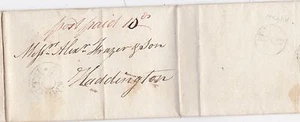 post paid 10
Messrs Alexr Frazer & Son
Haddington